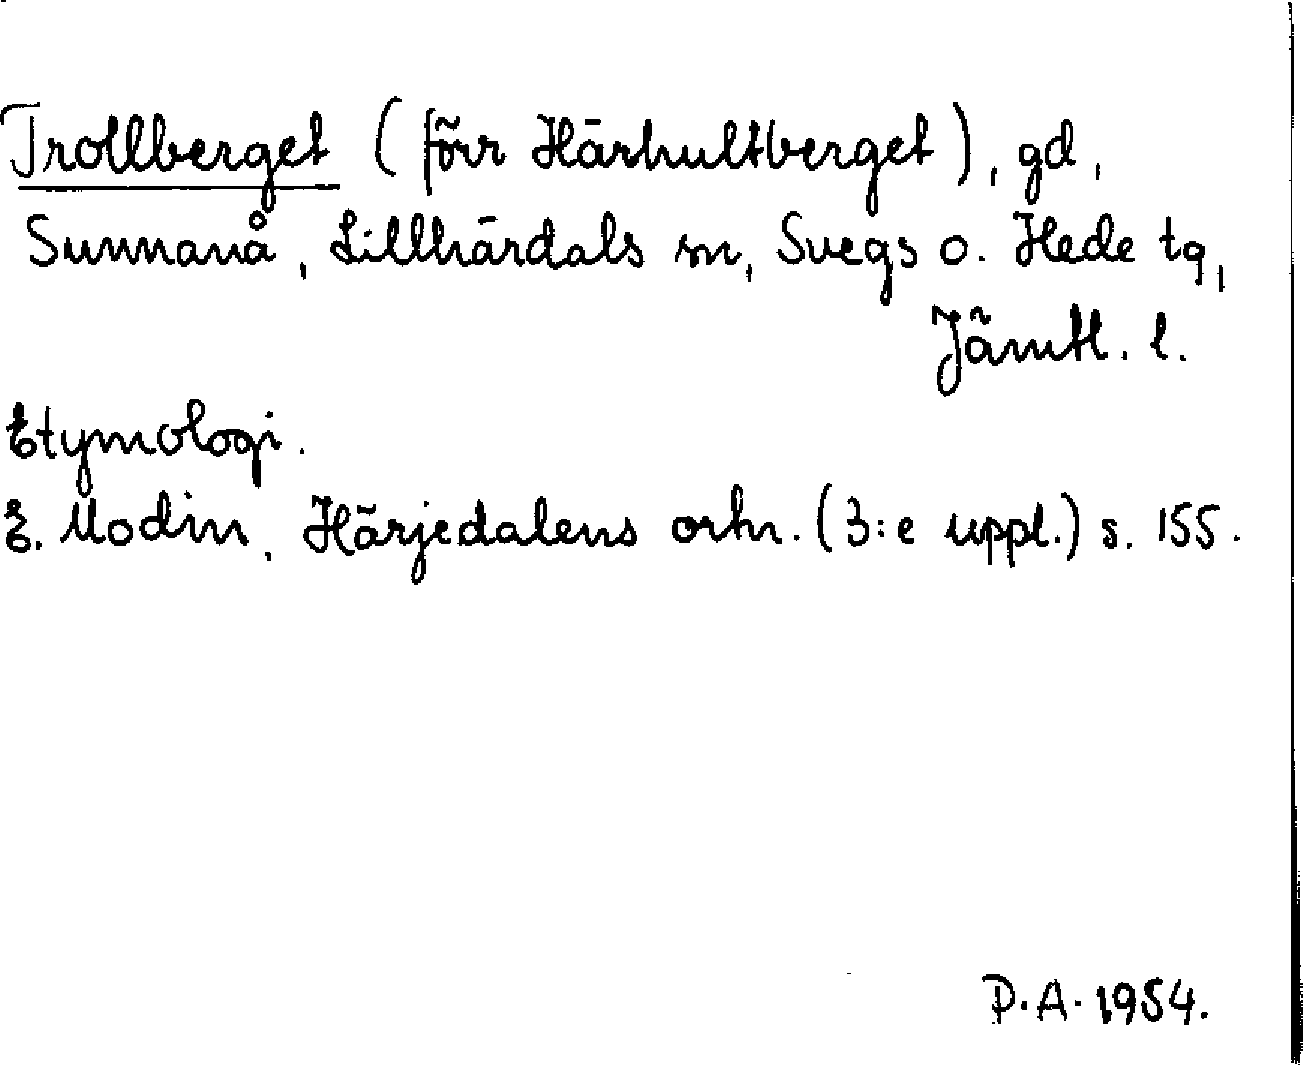 Trollberget (förr Härhultberget), gd,
Sunnanå, Lillhärdals sn, Svegs o. Hede tg,
Jämtl. l.
Etymologi.
E. Modin, Härjedalens ortn. (3:e uppl.) s. 155.
P.A. 1954.